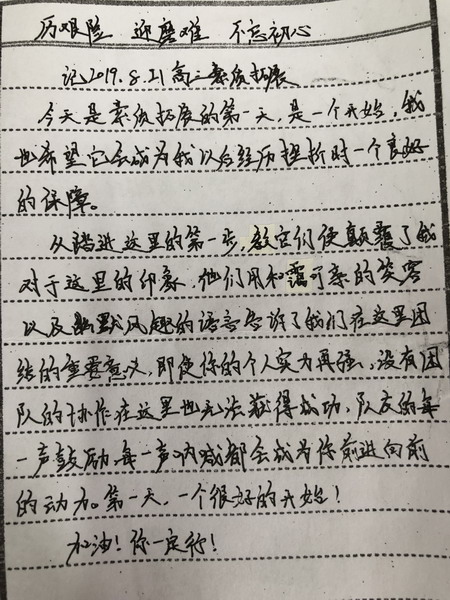 历艰险 迎磨难 不忘初心
记2019.8.21高二素质拓展
今天是素质拓展的第一天,是一个开始,我
也希望它会成为我以后经历挫折时一个良好
的保障。
从踏进这里的第一步,教官们便颠覆了我
对于这里的印象,他们用和蔼可亲的笑容
以及幽默风趣的语言告诉了我们在这里团
结的重要意义,即使你的个人实力再强,没有团
队的协作在这里也无法获得成功,队友的每
一声鼓励,每一声呐喊都会成为你前进向前
的动力。第一天,一个很好的开始!
加油!你一定行!